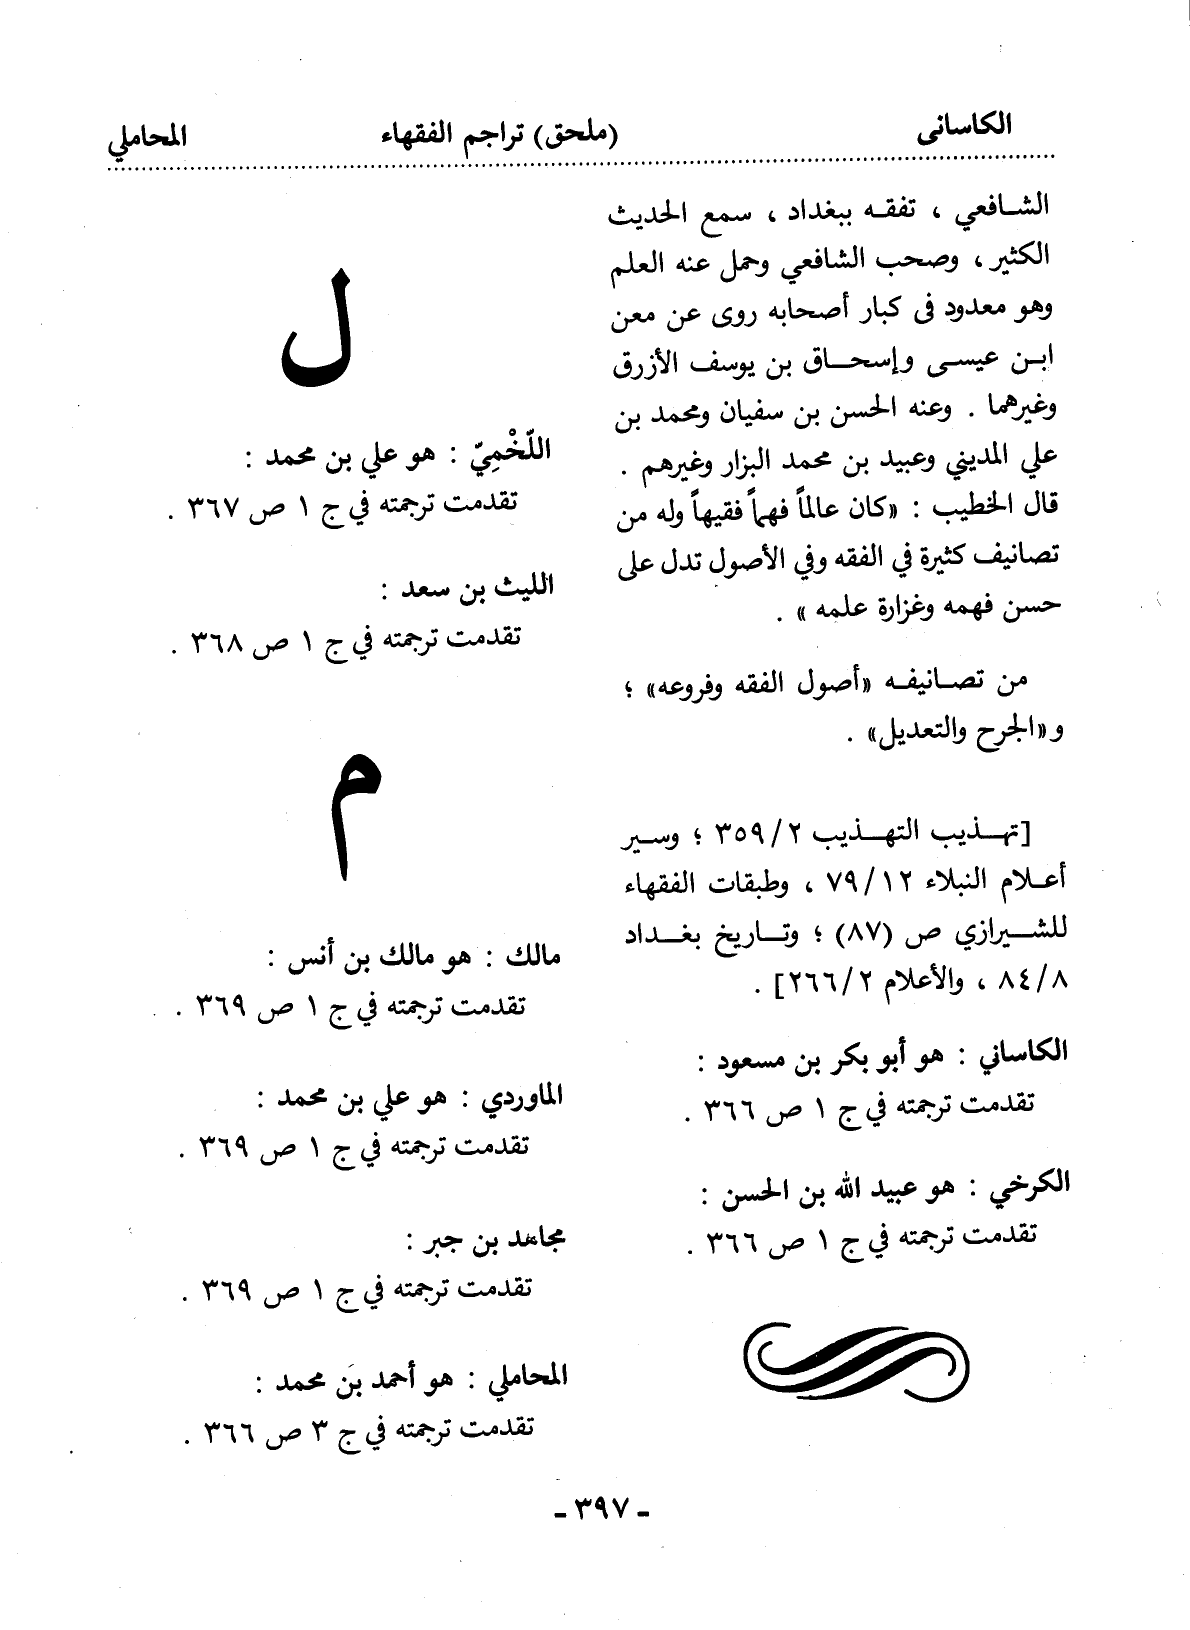 الكاسانى
(ملحق) تراجم الفقهاء
المحاملي
الشافعي ، تفقه ببغداد ، سمع الحديث
الكثير ، وصحب الشافعي وحمل عنه العلم
وهو معدود فى كبار أصحابه روى عن معن
ابن عيسى وإسحاق بن يوسف الأزرق
وغيرهما . وعنه الحسن بن سفيان ومحمد بن
علي المديني وعبيد بن محمد البزار وغيرهم .
قال الخطيب : «كان عالماً فهماً فقيهاً وله من
تصانيف كثيرة في الفقه وفي الأصول تدل على
حسن فهمه وغزارة علمه » .
من تصانيفه «أصول الفقه وفروعه» ؛
و«الجرح والتعديل» .
[تهذيب التهذيب ٢/ ٣٥٩ ؛ وسير
أعلام النبلاء ١٢/ ٧٩ ، وطبقات الفقهاء
للشيرازي ص (٨٧) ؛ وتاريخ بغداد
٨/ ٨٤ ، والأعلام ٢/ ٢٦٦] .
الكاساني : هو أبو بكر بن مسعود :
تقدمت ترجمته في ج ١ ص ٣٦٦ .
الكرخي : هو عبيد الله بن الحسن :
تقدمت ترجمته في ج ١ ص ٣٦٦ .
ل
اللّخْمِيّ : هو علي بن محمد :
تقدمت ترجمته في ج ١ ص ٣٦٧ .
الليث بن سعد :
تقدمت ترجمته في ج ١ ص ٣٦٨ .
م
مالك : هو مالك بن أنس :
تقدمت ترجمته في ج ١ ص ٣٦٩ .
الماوردي : هو علي بن محمد :
تقدمت ترجمته في ج ١ ص ٣٦٩ .
مجاهد بن جبر :
تقدمت ترجمته في ج ١ ص ٣٦٩ .
المحاملي : هو أحمد بن محمد :
تقدمت ترجمته في ج ٣ ص ٣٦٦ .
- ٣٩٧ -